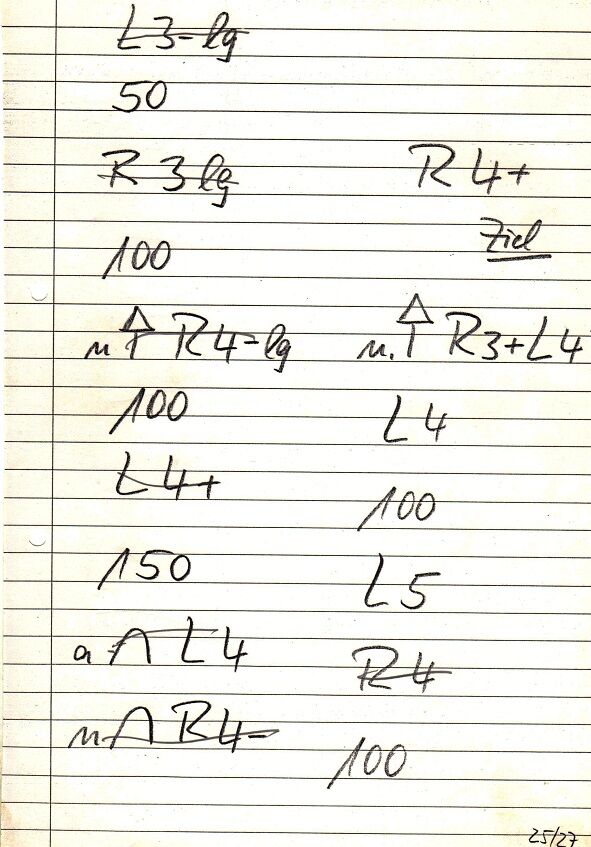 L3-lg
50
R 3 lg
100
n ↑ R4-lg
100
L 4+
150
a ∩ L 4
n ∩ R4-
R 4+
Ziel
n. ↑ R3+L4
L 4
100
L 5
R 4
100
25/27